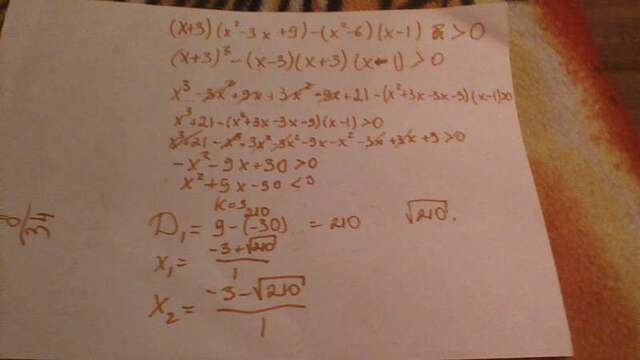 (x+3)(x²-3x+9)-(x²-6)(x-1) > 0
(x+3)³-(x-3)(x+3)(x-1)>0
x³-3x²+9x+3x²-9x+21-(x²+3x-3x-9)(x-1)>0
x³+21-(x²+3x-3x-9)(x-1)>0
x³+21-x³-3x²-3x²-9x-x²-3x+3x+9>0
-x²-9x+30>0
x²+9x-30<0
K=3
210
D₁=9-(-30) =210 √210.
x₁= -3+√210 / 1
x₂= -3-√210 / 1